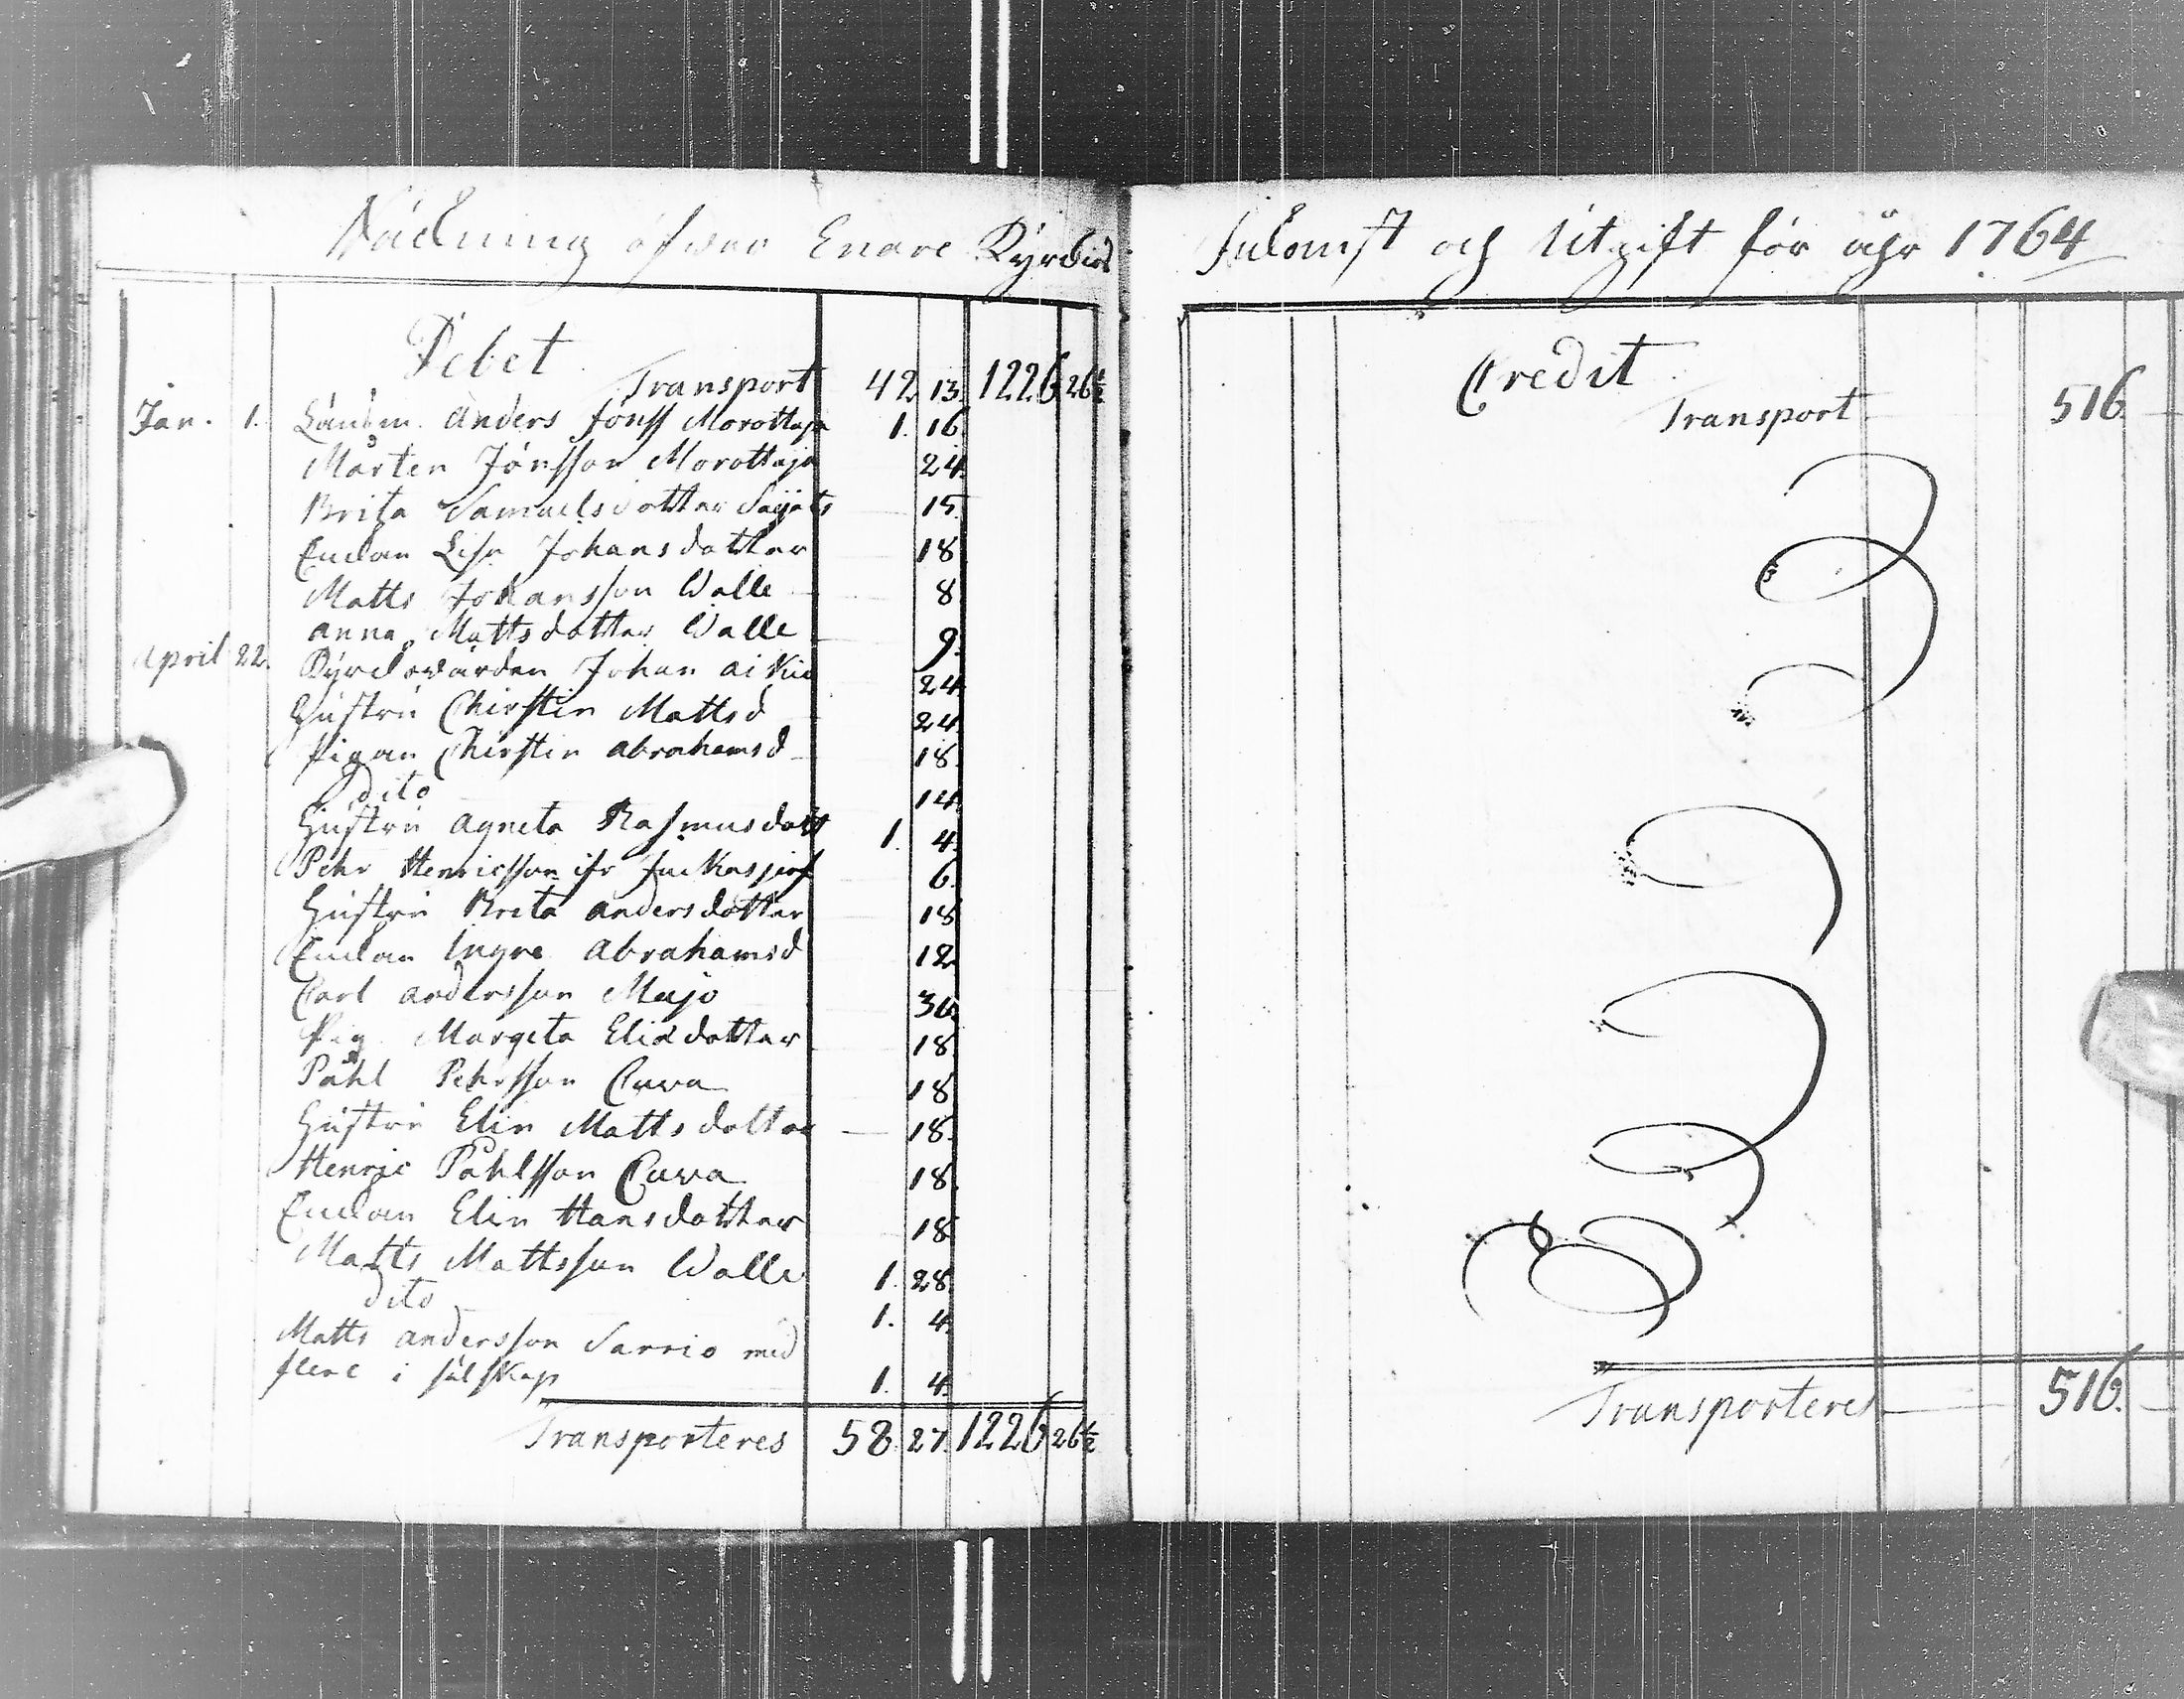 Räckning öfwer Enare Kyrckios
Debet
Transport 42 13 1226 26½
Jan. 1. Länsm. Anders Jönss Morottaja 1. 16.
Mårten Jönsson Morottaja 24.
Brita Samuelsdotter 15.
Enckan Lisa Johansdotter 18
Matts Johansson Walle 8.
Anna Mattsdotter Walle 9.
April 22. Kyrckowärden Johan Aikio 24.
Hustru Chirstin Mattsd 24
Pigan Chirstin Abrahamsd 18.
dito 14.
Hustru Agneta Rasmusdott 1. 4.
Pehr Henricsson ifr 6.
Hustru Brita Andersdotter 18
Enckan Ingre Abrahamsd 12.
Carl Andersson Mujo 36.
Pig. Margeta Eliædotter 18.
Påhl Pehrsson Cuva 18.
Hustru Elin Mattsdotter 18.
Henric Påhlsson Cuva 18.
Enckan Elin Hansdotter 18.
Matts Mattsson Walle 1. 28.
dito 1. 4.
Matts Andersson Sarrio med
flere i sälskap 1. 4.
Transporteres 58. 27. 1226 26½
Inkomst och Utgift för åhr 1764
Credit
Transport 516.
Transporteres 516.